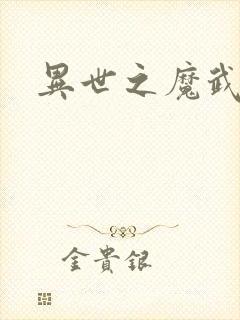 異世之魔武
金貴銀